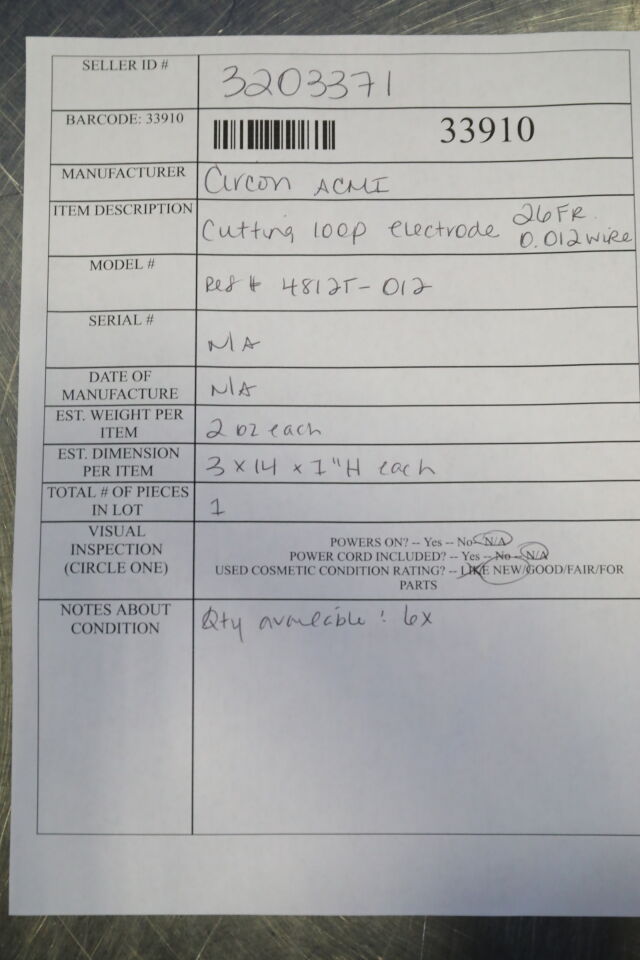 SELLER ID #
3203371
BARCODE: 33910
33910
MANUFACTURER
Circon ACMI
ITEM DESCRIPTION
Cutting loop electrode 26FR.
0.012 wire
MODEL #
Ref # 4812T-012
SERIAL #
N/A
DATE OF
MANUFACTURE
N/A
EST. WEIGHT PER
ITEM
2 oz each
EST. DIMENSION
PER ITEM
3 x 14 x 1"H each
TOTAL # OF PIECES
IN LOT
1
VISUAL
INSPECTION
(CIRCLE ONE)
POWERS ON? -- Yes -- No -- N/A
POWER CORD INCLUDED? -- Yes -- No -- N/A
USED COSMETIC CONDITION RATING? -- LIKE NEW/GOOD/FAIR/FOR
PARTS
NOTES ABOUT
CONDITION
Qty available: 6x